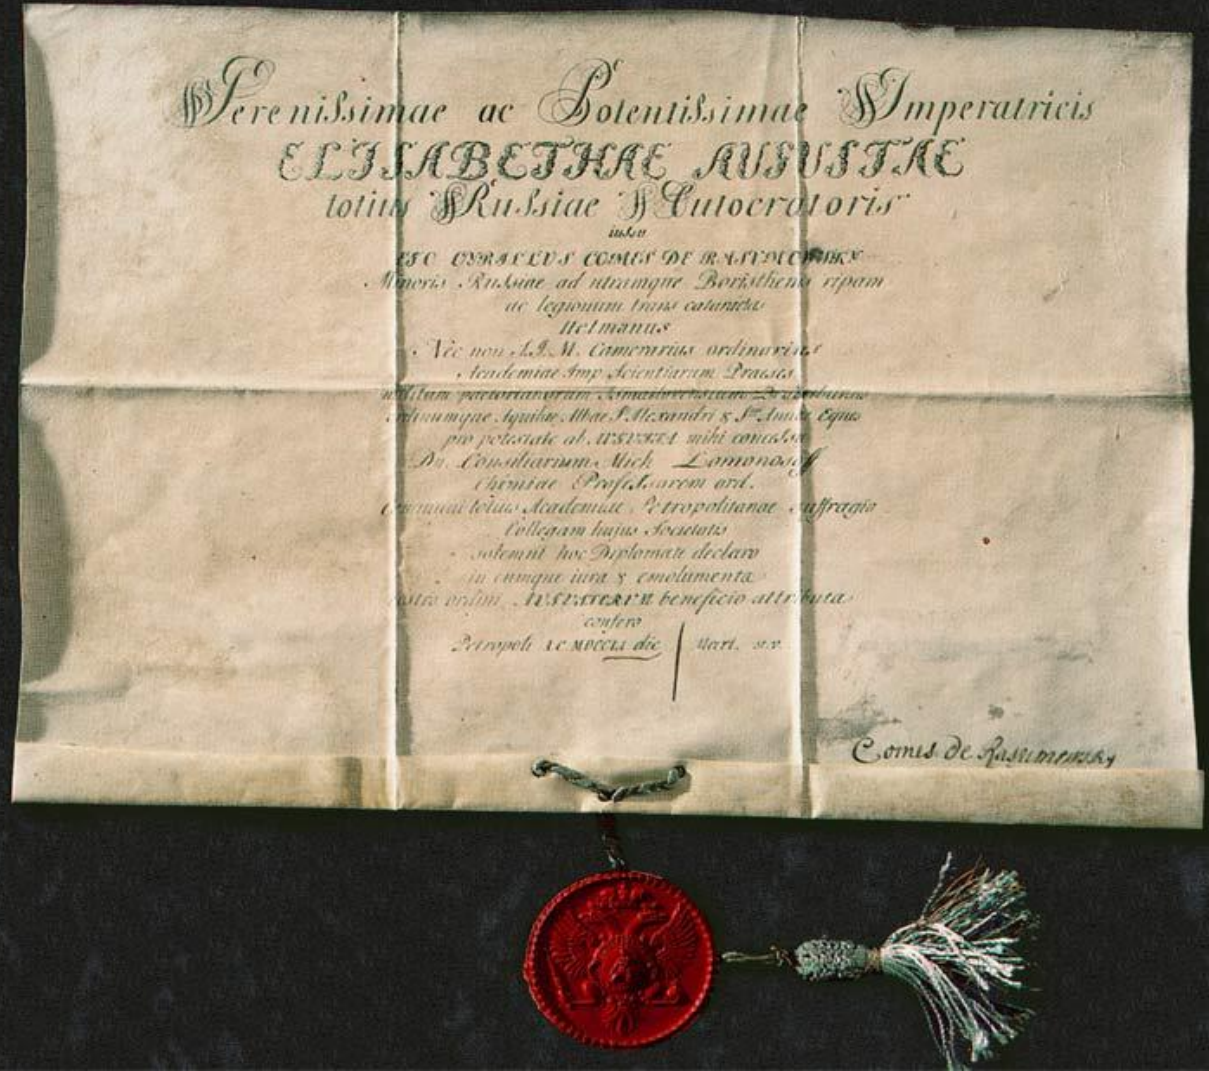 Serenissimae ac Potentissimae Imperatricis
ELISABETHAE AUGUSTAE
totius Russiae Autocratoris
iussu
EGO CYRILLUS COMES DE RASUMOWSKY
Minoris Russiae ad utramque Boristhenis ripam
ac legionum trans cataractas
Hetmanus
Nec non S. I. M. Camerarius ordinarius
Academiae Imp Scientiarum Praeses
ordinumque Aquilae Albae S. Alexandri & Stae Annae Eques
pro potestate ab AUGUSTA mihi concessa
Dn. Consiliarium Mich Lomonosoff
Chimiae Professorem ord.
communi totius Academiae Petropolitanae suffragio
Collegam hujus Societatis
solemni hoc Diplomate declaro
in eumque iura & emolumenta
nostro ordini AUGUSTARUM beneficio attributa
confero
Petropoli MDCCLI die Mart.
Comes de Rasumowsky